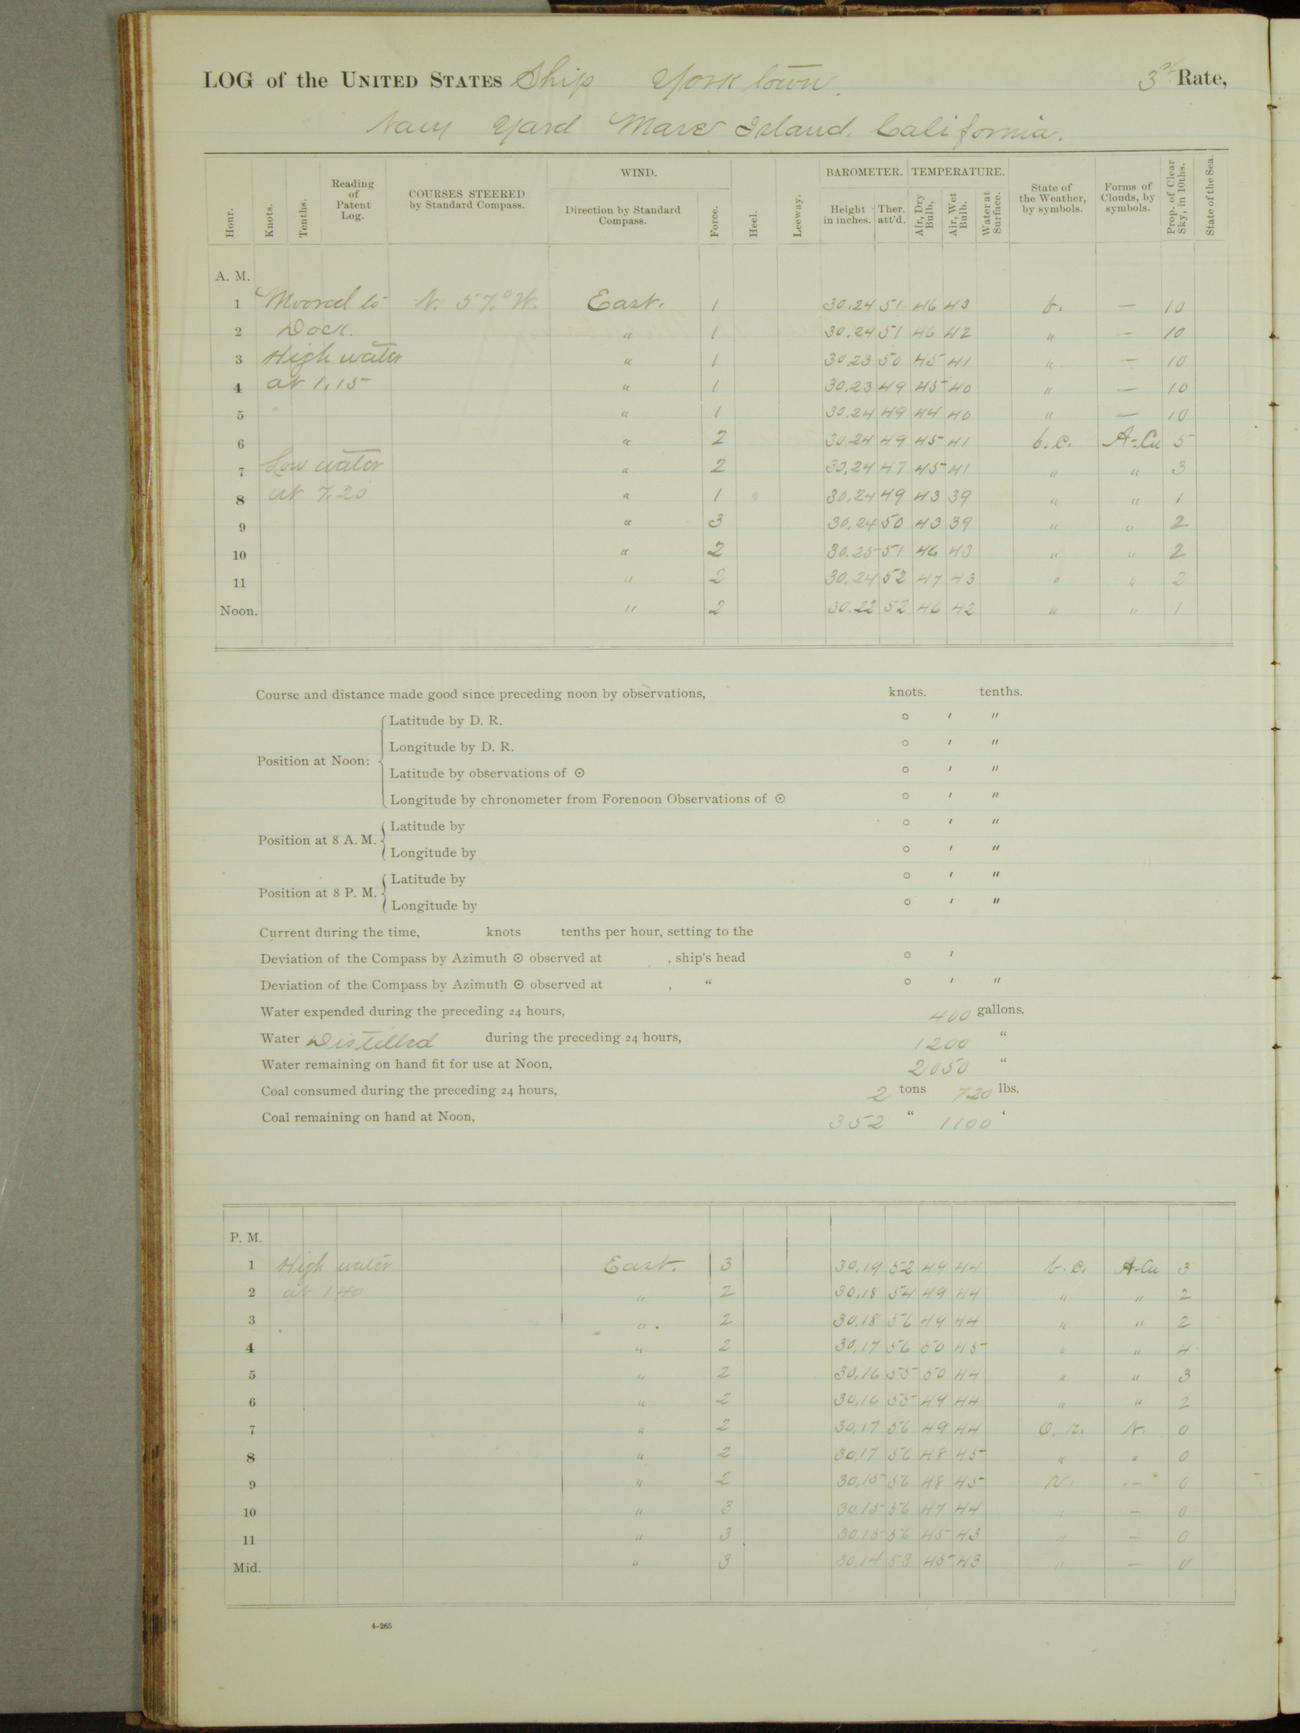 LOG of the UNITED STATES Ship Yorktown. 3d Rate,
Navy Yard Mare Island. California.
Hour. Knots. Tenths. Reading of Patent Log. COURSES STEERED by Standard Compass. WIND. Direction by Standard Compass. Force. Heel. Leeway. BAROMETER. Height in inches. Ther. att'd. TEMPERATURE. Air, Dry Bulb, Air, Wet Bulb. Water at Surface. State of the Weather, by symbols. Forms of Clouds, by symbols. Prop. of Clear Sky, in 10ths. State of the Sea.
A. M.
1 Moored to N. 57.° W. East. 1 30.24 51 46 43 b. — 10
2 Dock. " 1 30.24 51 46 42 " — 10
3 High water " 1 30.23 50 45 41 " — 10
4 at 1.15 " 1 30.23 49 45 40 " — 10
5 " 1 30.24 49 44 40 " — 10
6 " 2 30.24 49 45 41 b.c. A-.Cu 5
7 Low water " 2 30.24 47 45 41 " " 3
8 at 7.20 " 1 30.24 49 43 39 " " 1
9 " 3 30.24 50 43 39 " " 2
10 " 2 30.25 51 46 43 " " 2
11 " 2 30.24 52 47 43 " " 2
Noon. " 2 30.22 52 46 42 " " 1
Course and distance made good since preceding noon by observations, knots. tenths.
Position at Noon:
Latitude by D. R. ° ′ ″
Longitude by D. R. ° ′ ″
Latitude by observations of ⊙ ° ′ ″
Longitude by chronometer from Forenoon Observations of ⊙ ° ′ ″
Position at 8 A. M.
Latitude by ° ′ ″
Longitude by ° ′ ″
Position at 8 P. M.
Latitude by ° ′ ″
Longitude by ° ′ ″
Current during the time, knots tenths per hour, setting to the
Deviation of the Compass by Azimuth ⊙ observed at , ship's head ° ′
Deviation of the Compass by Azimuth ⊙ observed at , " ° ′ ″
Water expended during the preceding 24 hours, 400 gallons.
Water Distilled during the preceding 24 hours, 1200 "
Water remaining on hand fit for use at Noon, 2050 "
Coal consumed during the preceding 24 hours, 2 tons 720 lbs.
Coal remaining on hand at Noon, 352 " 1100 '
P. M.
1 High water East. 3 30.19 52 49 44 b.c. A-Cu 3
2 at 1.40 " 2 30.18 54 49 44 " " 2
3 " 2 30.18 56 49 44 " " 2
4 " 2 30.17 56 50 45 " " 4
5 " 2 30.16 55 50 44 " " 3
6 " 2 30.16 55 49 44 " " 2
7 " 2 30.17 56 49 44 O. r. N. 0
8 " 2 30.17 56 48 45 " " 0
9 " 2 30.15 56 48 45 — 0
10 " 3 30.15 56 47 44 " — 0
11 " 3 30.15 56 45 43 " — 0
Mid. " 3 30.14 53 45 43 " — 0
4-265